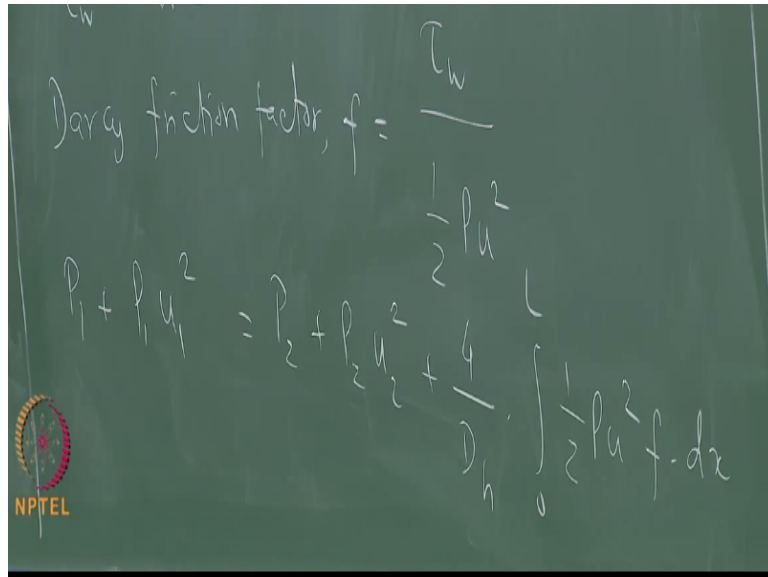 τw
Darcy friction factor, f = τw / ½ ρu²
P₁ + ρ₁u₁² = P₂ + ρ₂u₂² + 4/Dₕ · ∫₀ᴸ ½ ρu² f · dx
NPTEL